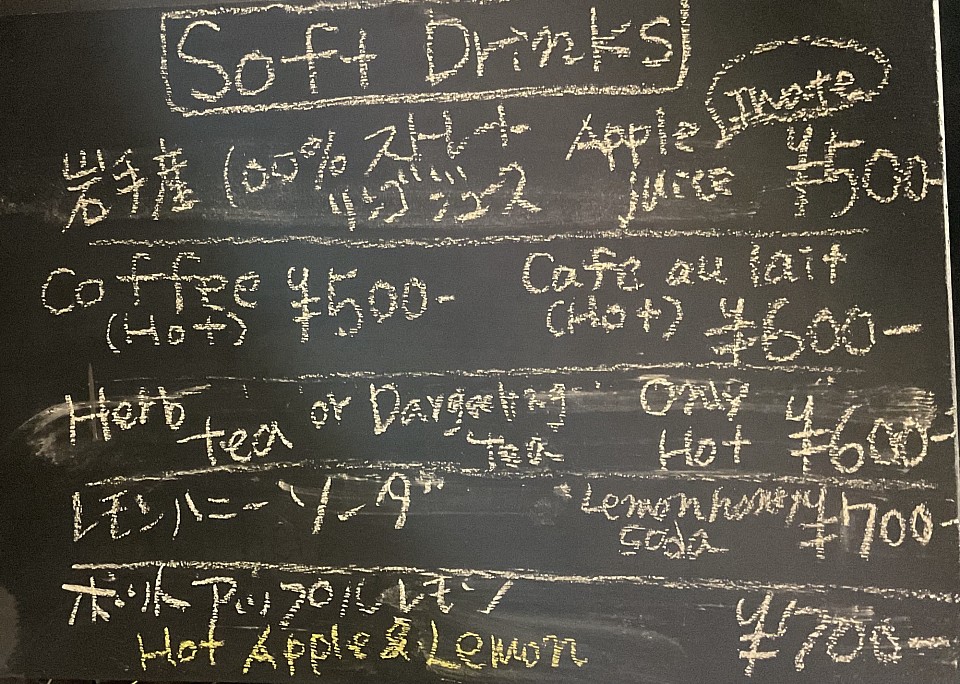 Soft Drinks
岩手産 100% ストレート リンゴジュース Apple juice Iwate ¥500-
Coffee (Hot) ¥500-
Café au lait (Hot) ¥600-
Herb tea or Dargeeling tea Only Hot ¥600-
レモンハニーソーダ Lemon honey soda ¥700-
ホットアップルレモン
Hot Apple & Lemon ¥700-